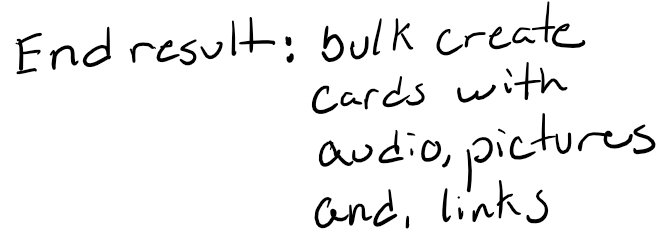 End result: bulk create
cards with
audio, pictures
and, links